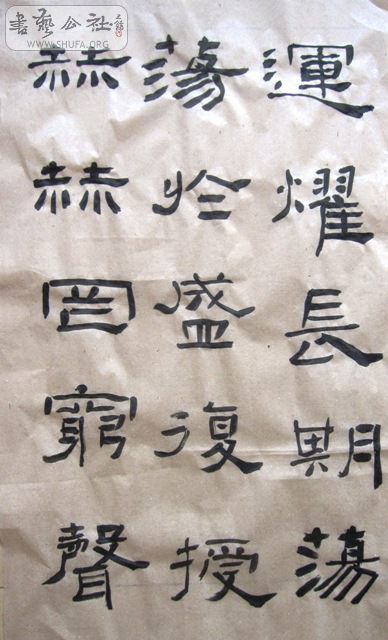 運耀長期蕩
蕩於盛復授
赫赫罔窮聲
書藝公社
WWW.SHUFA.ORG